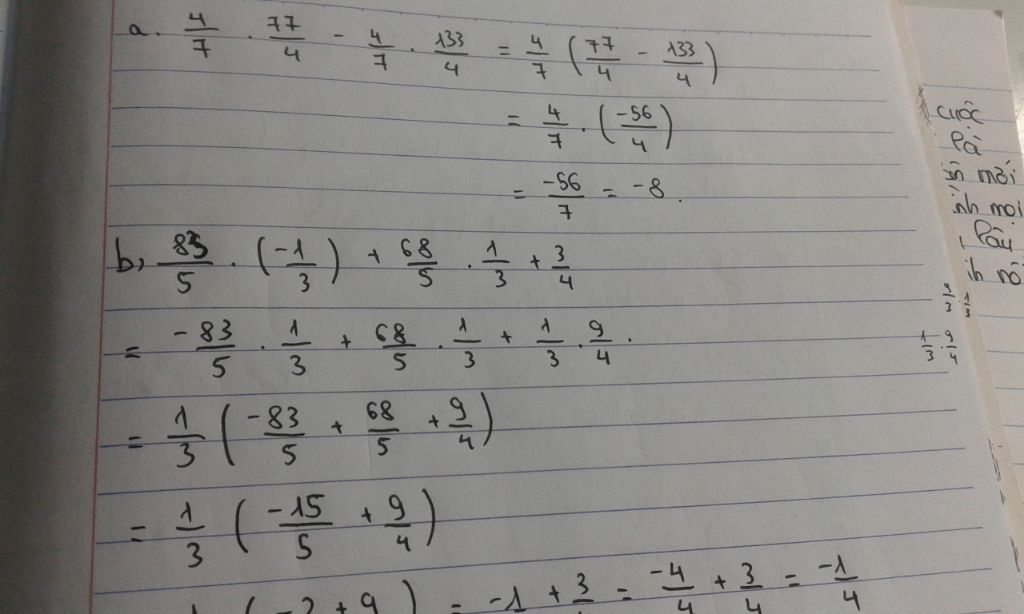 a. 4/7 . 77/4 - 4/7 . 133/4 = 4/7 (77/4 - 133/4)
= 4/7 . (-56/4)
= -56/7 = -8.
b, 83/5 . (-1/3) + 68/5 . 1/3 + 3/4
= -83/5 . 1/3 + 68/5 . 1/3 + 1/3 . 9/4.
= 1/3 (-83/5 + 68/5 + 9/4)
= 1/3 (-15/5 + 9/4)
= -1 + 3/4 = -4/4 + 3/4 = -1/4
cuộc
là
mới
mọi
1/3 . 9/4